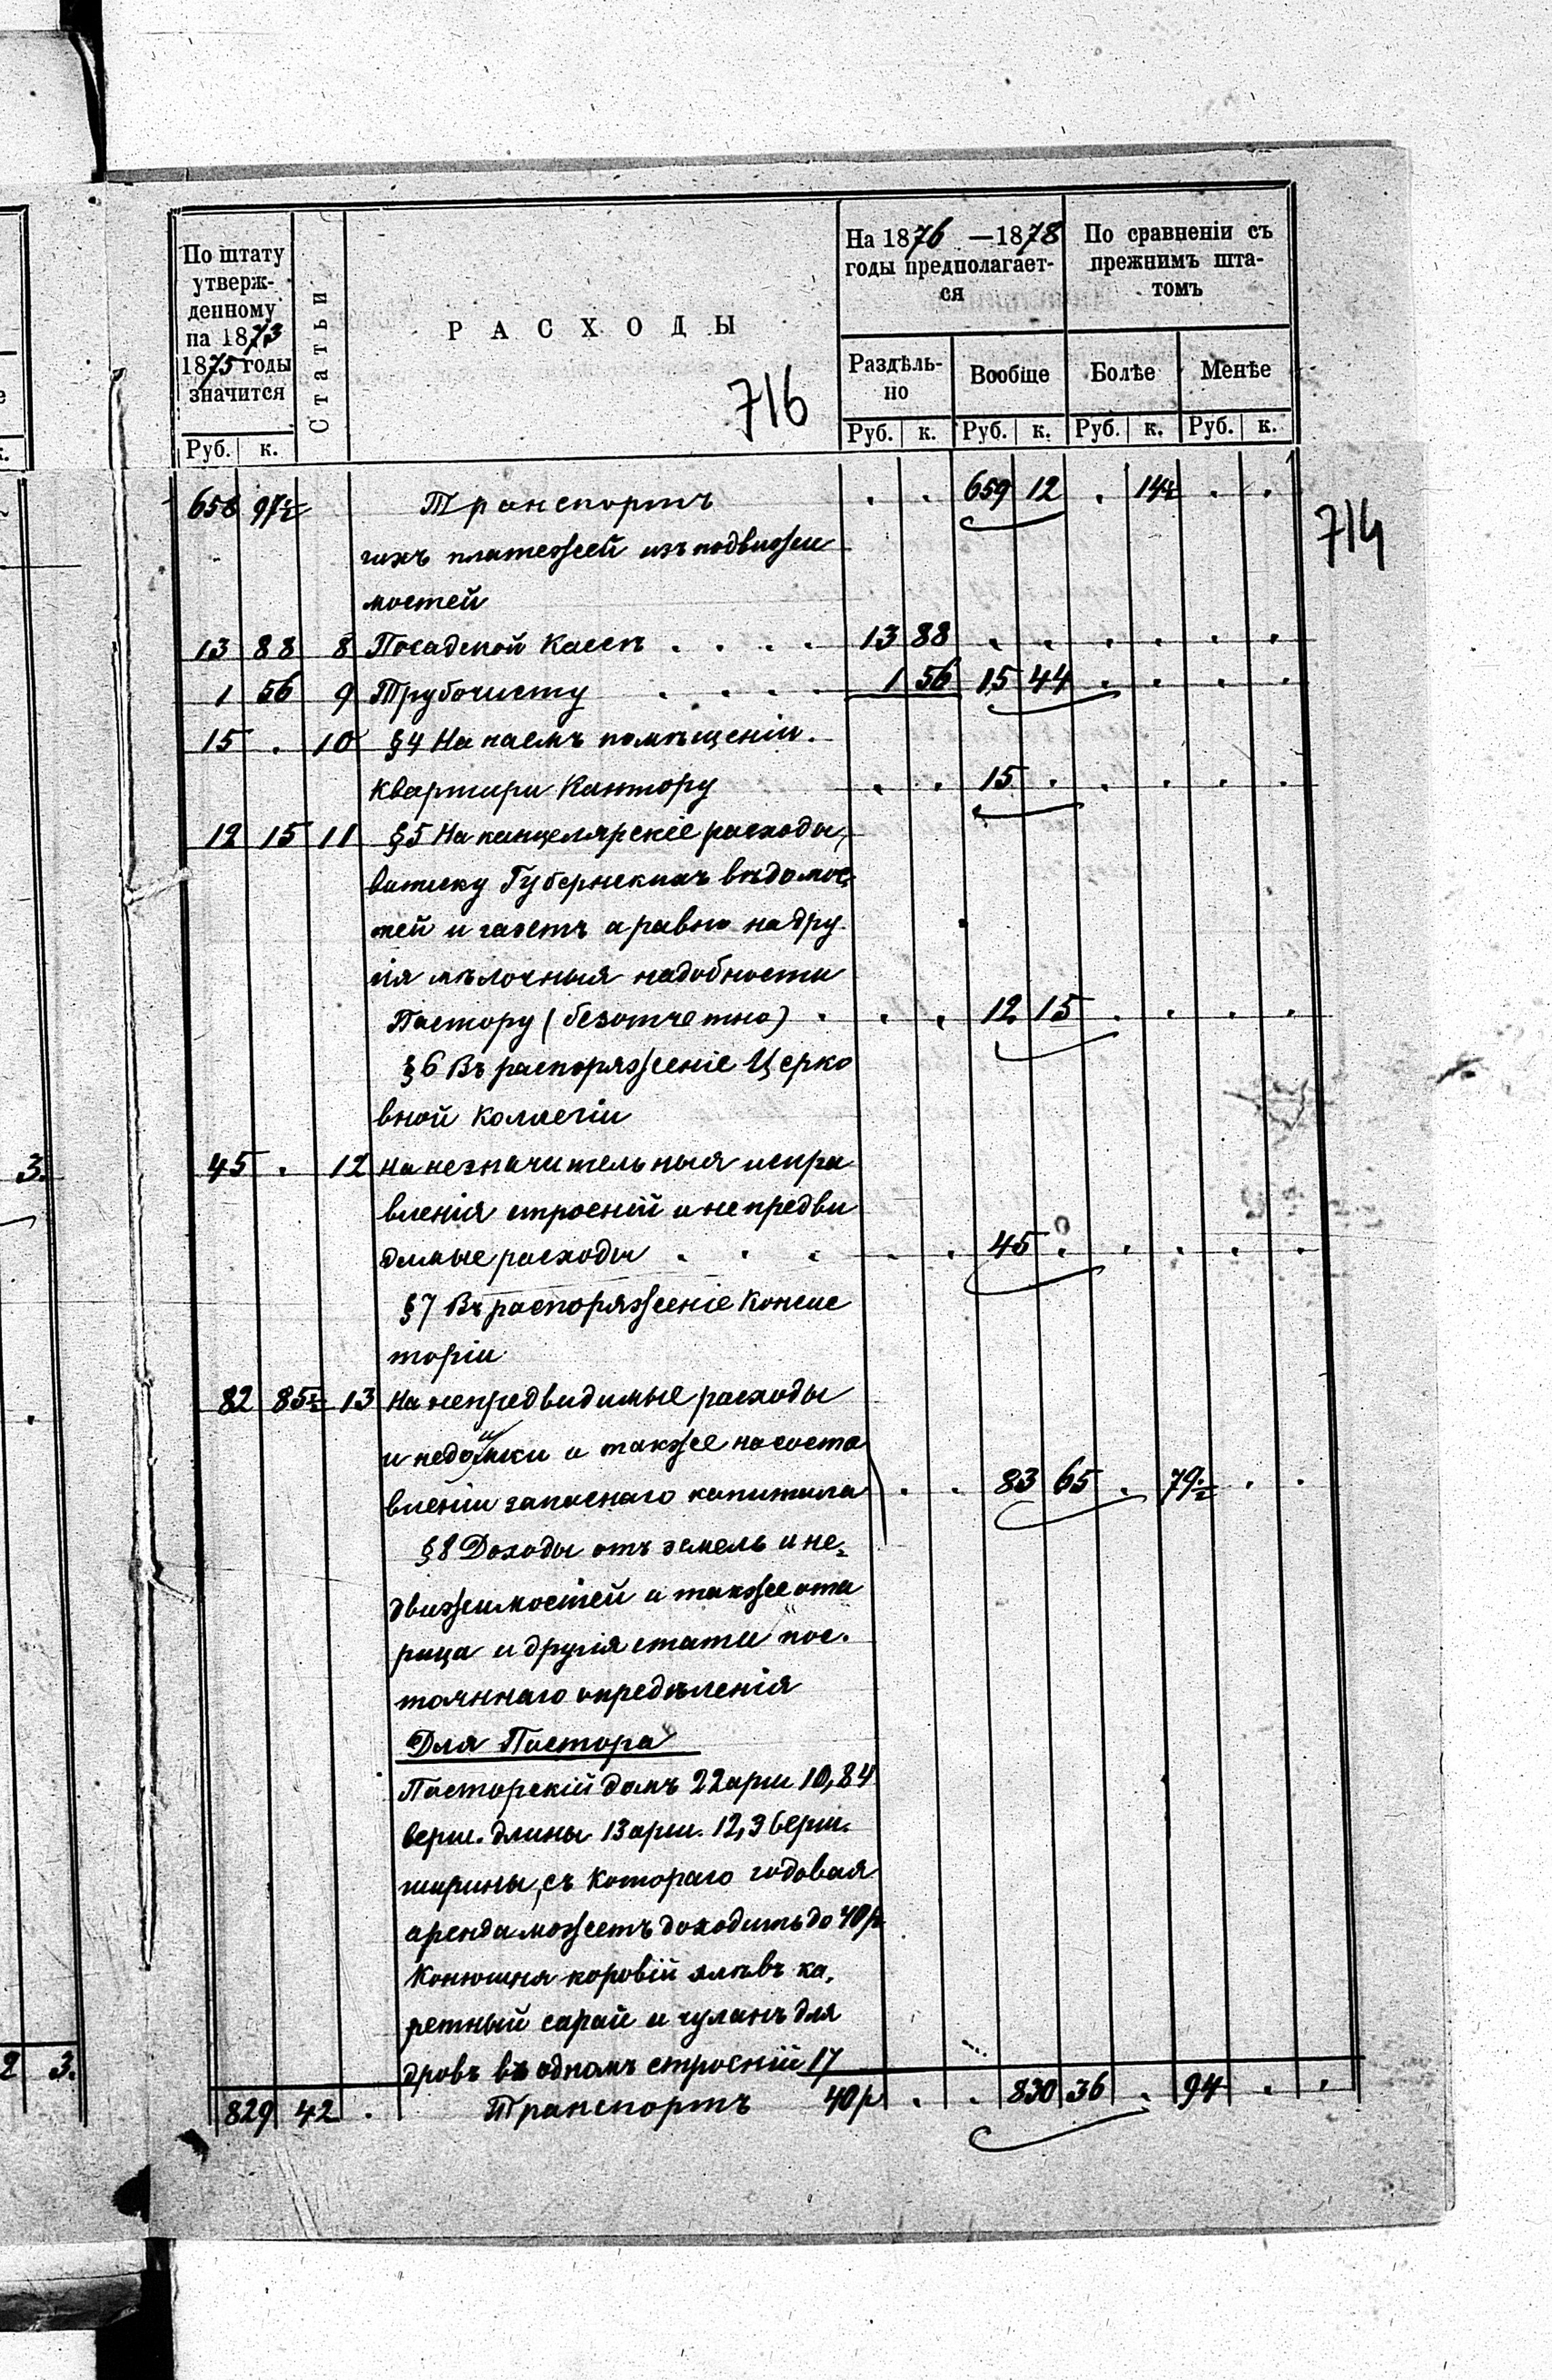 По штату утверж- денному на 1873 1875 годы значится
Статьи
РАСХОДЫ
На 1876 —1878 годы предполагает- ся
По сравненіи съ прежнимъ шта- томъ
Раздѣль- но
Вообще
Болѣе
Менѣе
Руб. к. Руб. к. Руб. к. Руб. к. Руб. к.
716
714
658 97½ Транспортъ . . 659 12 . 14½ . .
гихъ платежей изъ подвижи
мостей
13 88 8 Посадской Кассѣ . . . . 13 88 . . . . . .
1 56 9 Трубочисту . . . . 1 56 15 44 . . . .
15 . 10 §4 На наемъ помѣщеніи.
квартири Кантору . . 15 . . . . .
12 15 11 §5 На канцелярскіе расходы,
виписку Губернскихъ вѣдомос-
тей и газетъ а равно на дру-
гія мѣлочныя надобности
Пастору (безотчетно) . . . 12 15 . . . .
§6 Въ распоряженіе Церко
вной Коллегіи
45 . 12 на незначительныя испра
вленія строеній и непредви
димые расходы . . . . . 45 . . . . .
§7 Въ распоряженіе Консис
торіи
82 85½ 13 На непредвидимые расходы
и недоимки и также на соста
вленіи запаснаго капитала . . 83 65 . 79½ . .
§8 Доходы отъ земель и не-
движимостей и также ота
рица и другія стати пос.
тояннаго опредѣленія
Для Пастора
Пасторскій домъ 22 арш 10,84
верш. длины 13 арш. 12,3 верш.
ширины, съ котораго годовая
аренда можетъ доходить до 40 р
Конюшня коровій хлѣвъ ка,
ретный сарай и чуланъ для
дровъ въ одномъ строеній 17
829 42 . Транспортъ 40 р . . 830 36 . 94 . .
3.
2 3.